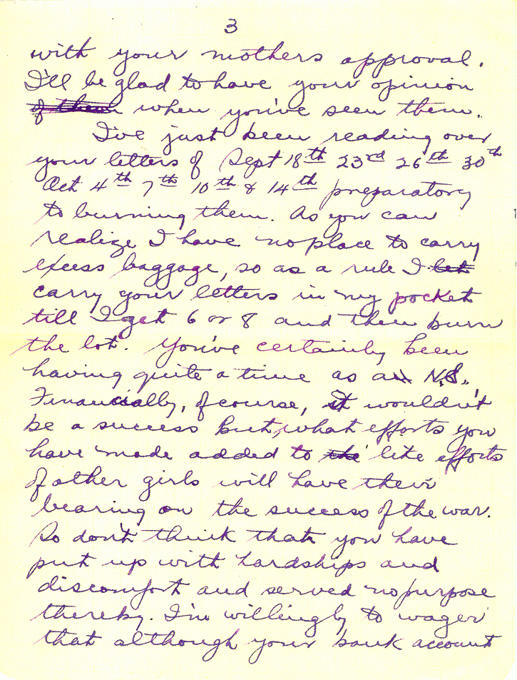 3
with your mothers approval.
I'll be glad to have your opinion
of them when you've seen them.
I've just been reading over
your letters of Sept 18th 23rd 26th 30th
Oct 4th 7th 10th & 14th preparatory
to burning them. As you can
realize I have no place to carry
excess baggage, so as a rule I let
carry your letters in my pocket
till I get 6 or 8 and then burn
the lot. You've certainly been
having quite a time as an N.S.
Financially, of course, it wouldn't
be a success but, what efforts you
have made added to the like efforts
of other girls will have their
bearing on the success of the war.
So don't think that you have
put up with hardships and
discomfort and served no purpose
thereby. I'm willingly to wager
that although your bank account